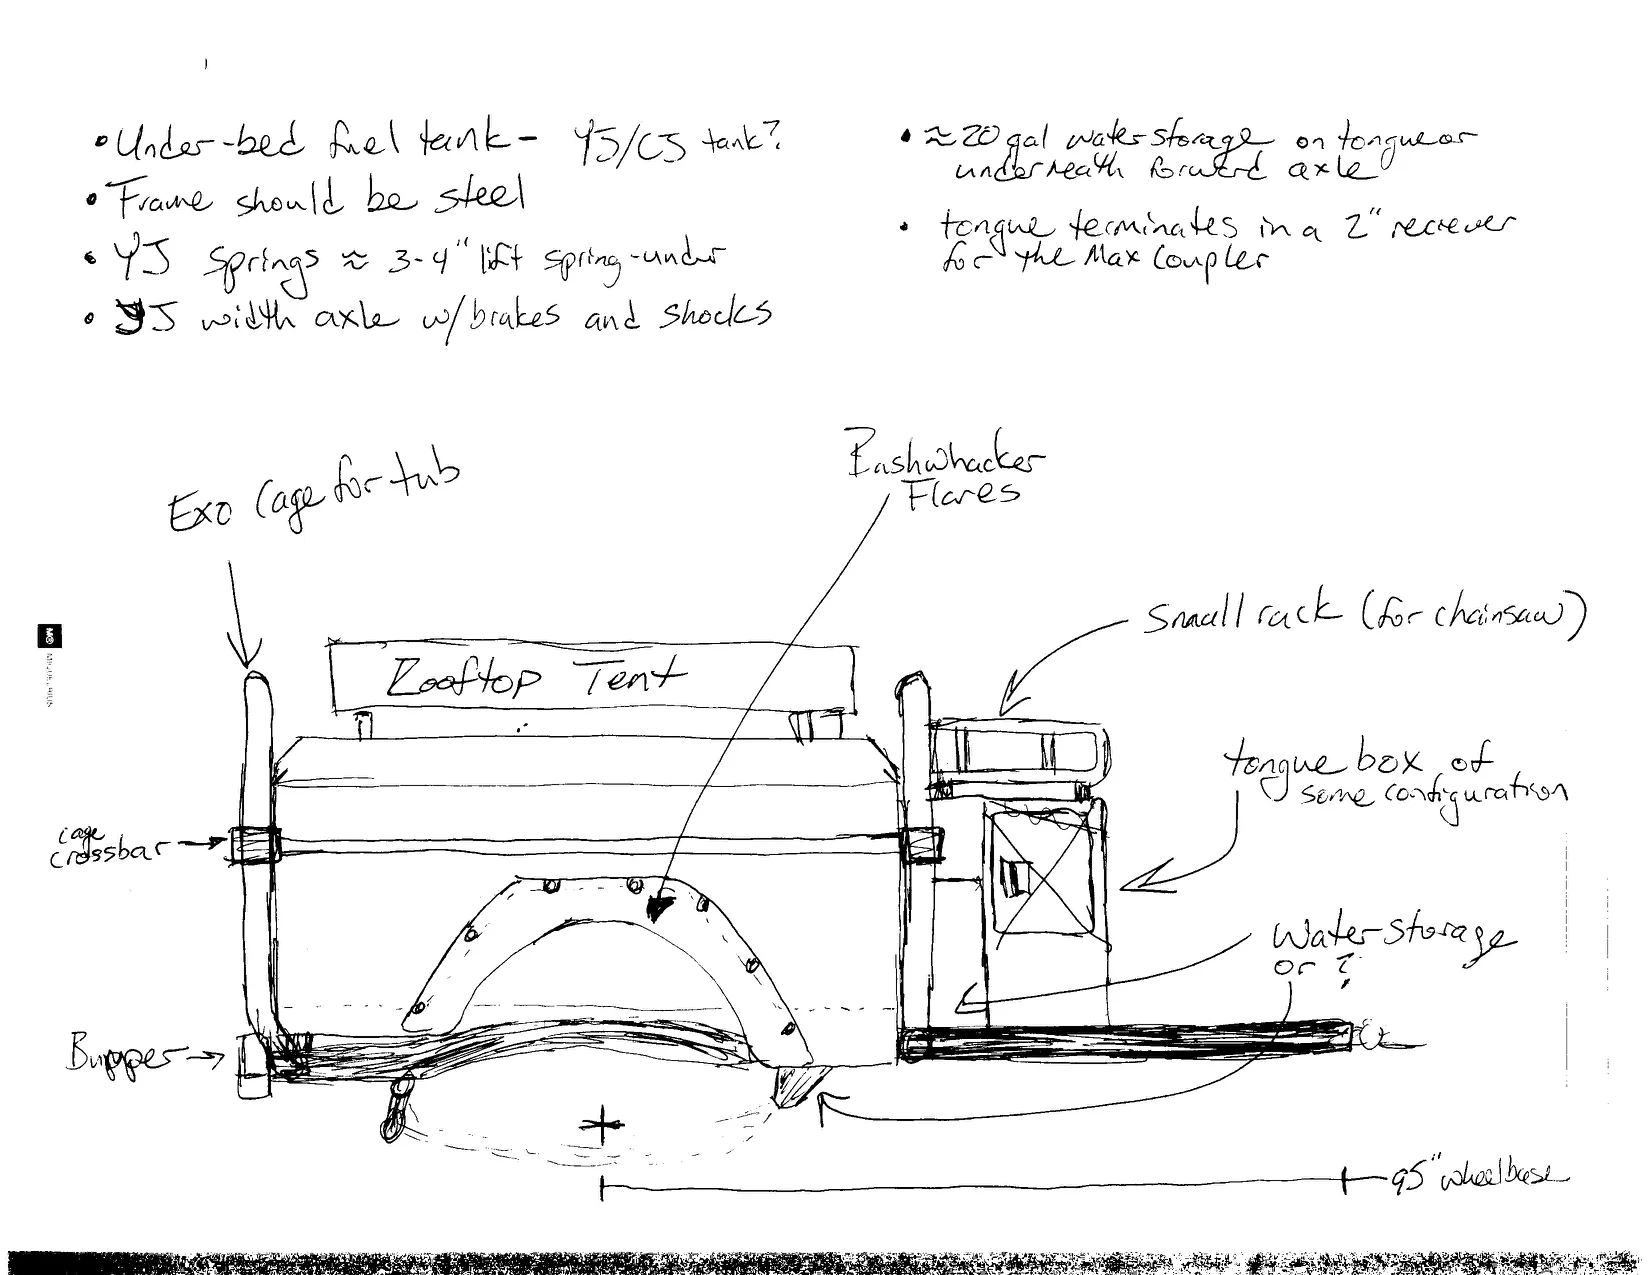 • Under-bed fuel tank - YJ/CJ tank?
• Frame should be steel
• YJ springs ≈ 3-4" lift spring-under
• YJ width axle w/brakes and shocks
• ≈20 gal water storage on tongue or
underneath forward axle
• tongue terminates in a 2" reciever
for the Max Coupler
Exo Cage for tub
Bushwhacker
Flares
Small rack (for chainsaw)
Rooftop Tent
tongue box of
some configuration
cage
crossbar
Water Storage
or ?
Bumper
95" wheelbase